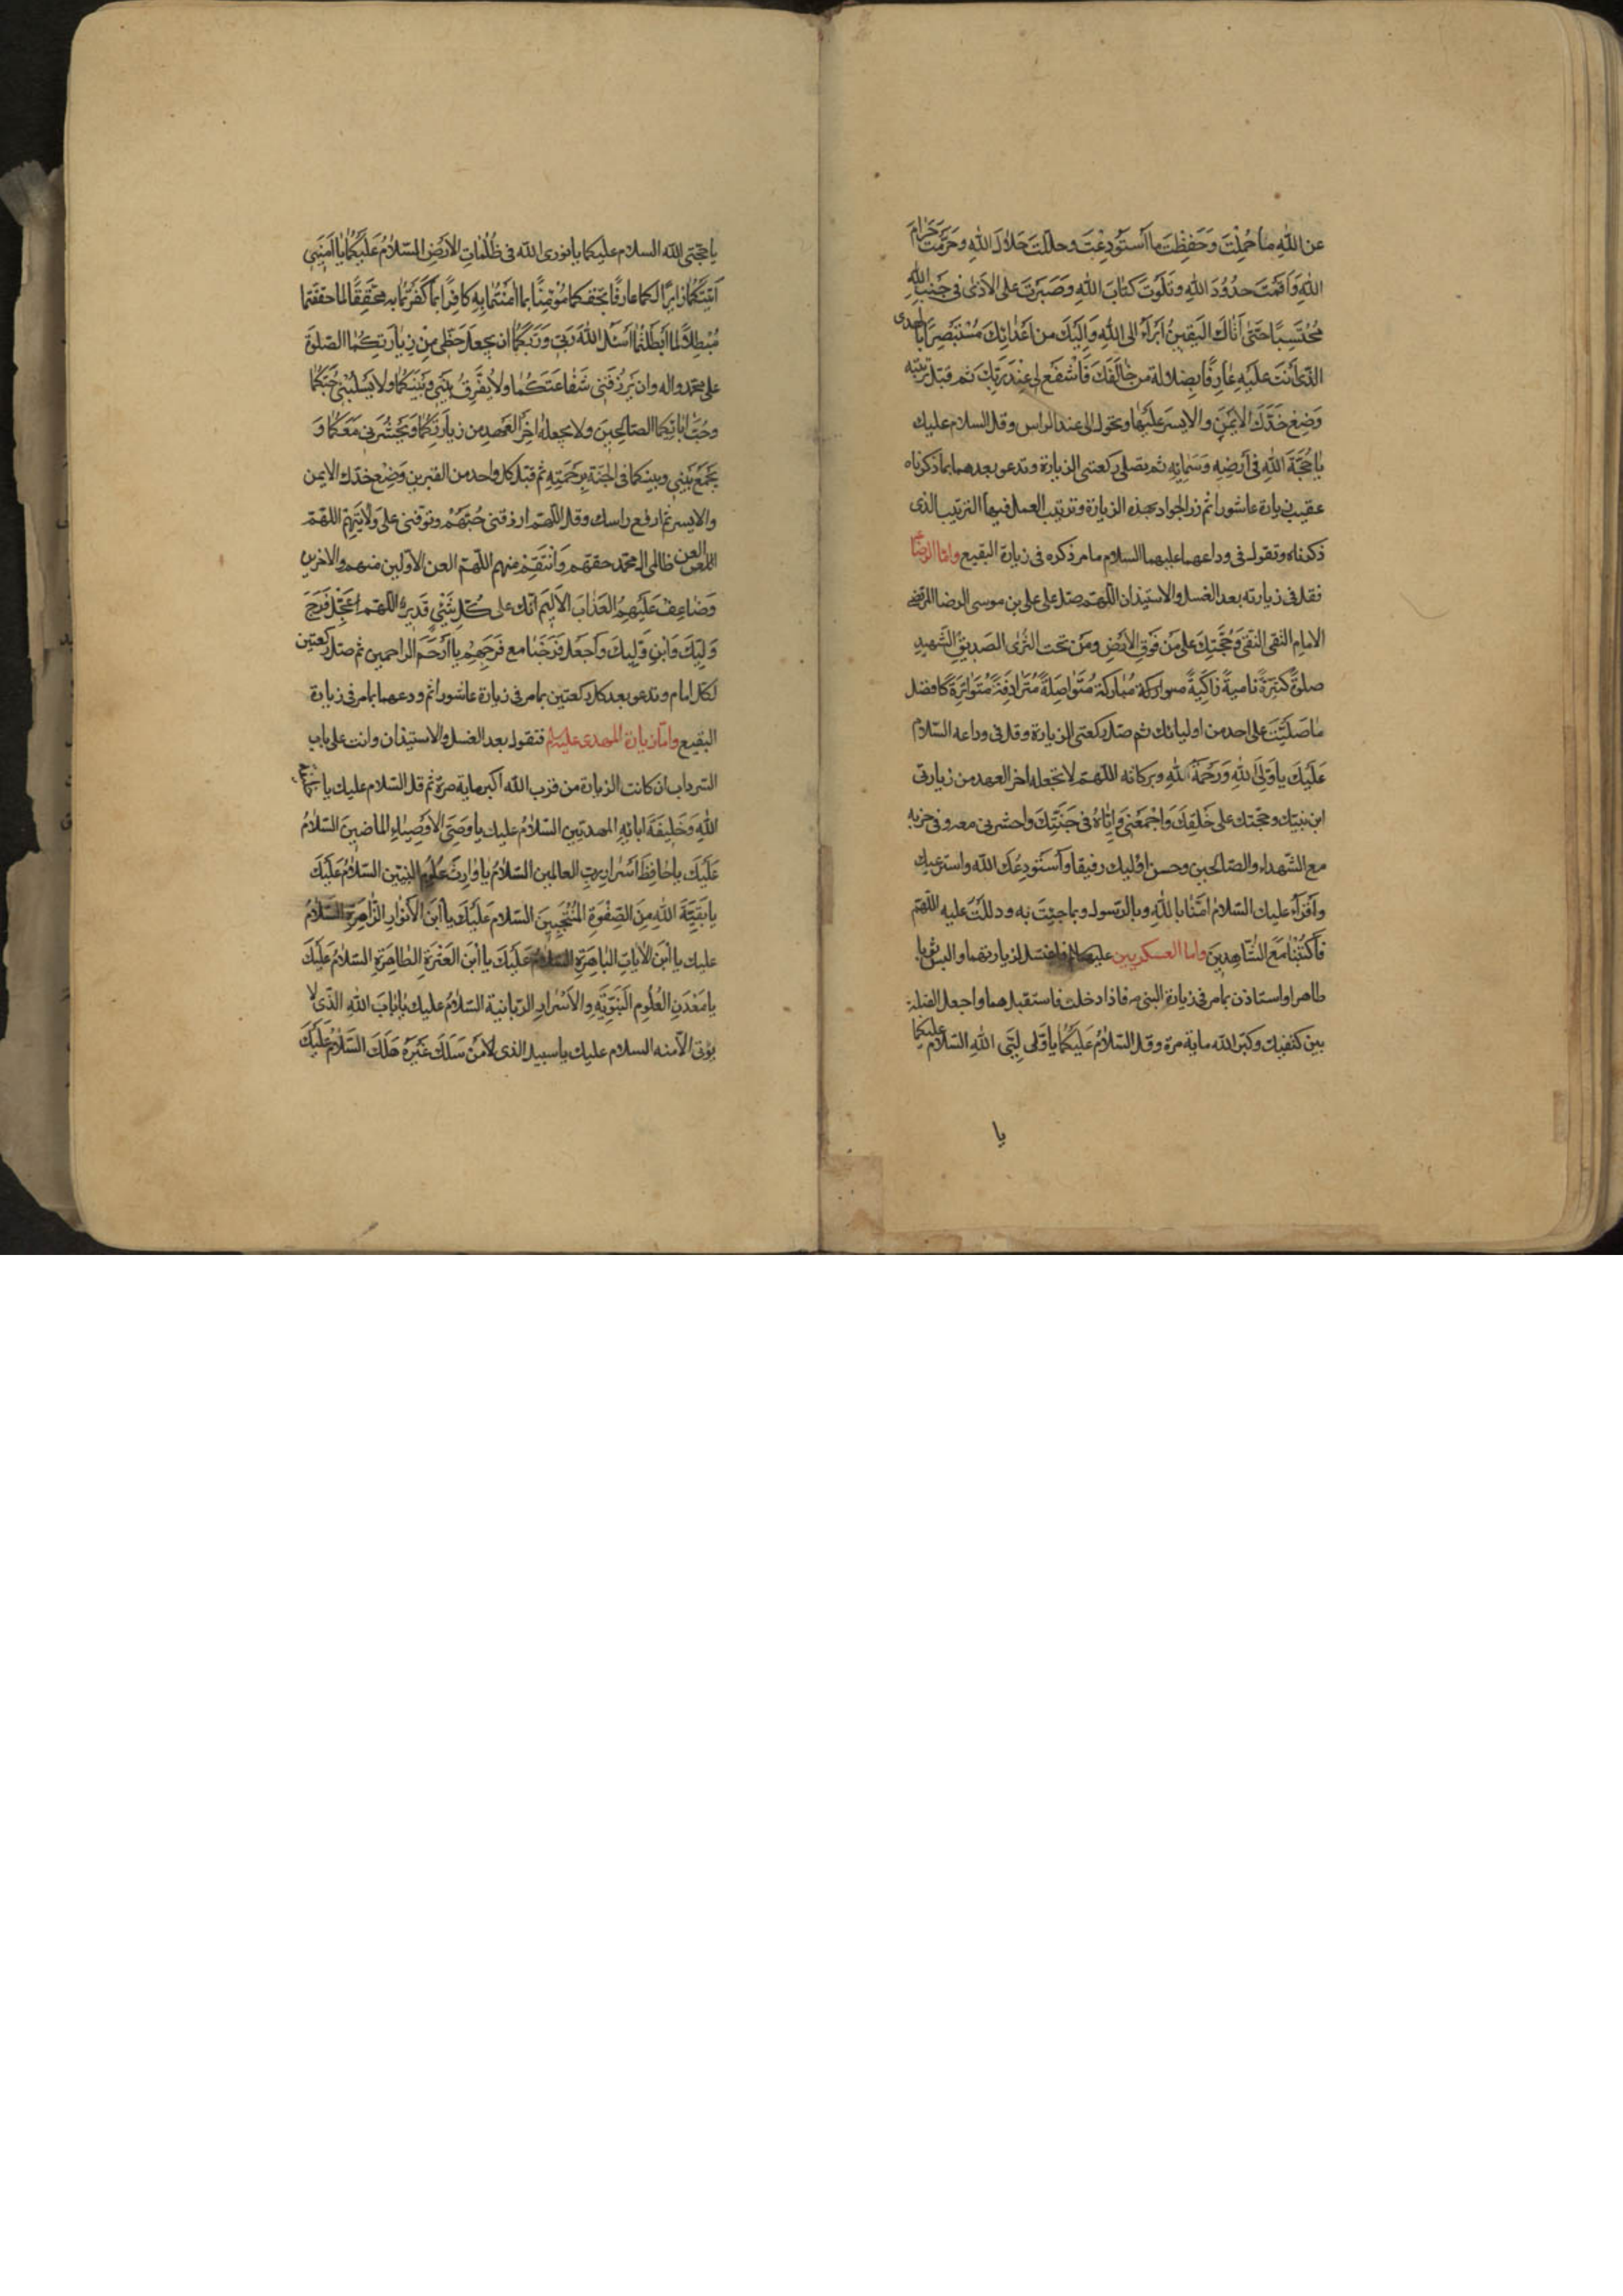 عن اللّهِ ما حُمِّلتَ وَحَفِظتَ ما اَستُودِعتَ وحلّلتَ حَلالَ اللهِ وحَرَّمتَ حَرامَ
اللهِ وَاَقَمْتَ حدُودَ اللهِ وتَلَوتَ كتابَ اللهِ وَصَبَرتَ على الاذى فى جَنبِ اللهِ
مُحتَسِبًا حَتّى اَتاكَ اليَقينُ اَبرَأُ الى اللهِ وَاِلَيكَ من اَعدائِكَ مُستَبصِرًا بالهُدى
الذّى اَنتَ علَيهِ عارِفًا بضِلالة من خالَفَكَ فَاشفَع لى عِندَ رَبّكَ ثم قبّل تربته
وَضِع خَدّكَ الايمَنِ والايسرَ علَيها وتحول الى عند الراس وقل السلام عليك
يا حُجَّةَ اللهِ فى اَرضِهِ وَسَمائِهِ ثم تصلى ركعتى الزيارة وتدعو بعدهما بما ذكرناه
عقيب زيارة عاشورا ثم زر الجواد بهذه الزيارة وترتيب العمل فيها الترتيب الذى
ذكرناه وتقول فى وداعهما عليهما السلام ما مر ذكره فى زيارة البقيع واما الرضا ع
فقل فى زيارته بعد الغسل والاستيذان اللّهمّ صلّ على على بن موسى الرضا المرتضى
الامامِ التقى النقى وَحُجَّتِكَ على مَن فَوق الارضِ ومَن تحت الثرى الصديقِ الشهيدِ
صلوةً كثيرَةً ناميةً زاكِيةً مباركة مُتَواصِلَةً مُتَرادِفَةً مُتَواتِرَةً كافضل
ما صلّيتَ على احد من اوليائك ثم صلّ ركعتى الزيارة وقل فى وداعه السّلام
عَلَيكَ يا وَلِىَّ اللهِ وَرَحمَةُ اللهِ وبركاته اللّهمّ لا تجعله اخر العهد من زيارتى
ابن نبيّك وحجّتك على خَلقِكَ وَاجمَعنى وَاِيّاهُ فى جَنَّتِكَ واحشرنى معه وفى حزبه
مع الشّهداء والصّالحين وحسن اولئِك رفيقا وَاَستَودِعُكَ اللّه واسترعيك
واَقرَأُ عليك السّلام امَنّا باللهِ وبالرّسول وبما جئِتَ به ودللتَ عليه اللّهمّ
فَاكتُبنا مَعَ الشّاهِدينَ واما العسكريين عليهما السلام فاغتسل لزيارتهما والبس ثوبا
طاهرا واستاذن بما مر فى زيارة النبى ص فاذا دخلت فاستقبلهما واجعل القبلة
بين كتفيك وكبّر اللّه ماية مرة وقل السّلامُ عَلَيكُما يا وَلِيَّىِ اللهِ السّلام عليكما
يا
يا حجّتى اللّه السلام عليكما يا نورى اللّه فى ظُلُماتِ الاَرضِ السّلامُ عَلَيكُما يا اَمينَىِ
اَتَيتُكُما زائِرًا لكما عارفًا بحقّكما مُؤمِنًا بما امَنتُما بِهِ كافِرًا بما كَفَرتُما به مُحَقِّقًا لما حقّقتما
مُبطِلاً لما اَبطَلتُما اَسئَلُ اللهَ رَبّى وَرَبَّكُما ان يجعَلَ حَظّى مِنْ زِيارَتِكُما الصّلوةَ
على محمّد واله وان يَرزُقَنى شَفاعَتَكُما ولا يُفَرِّقَ بَينى وَبَينَكُما ولا يَسلُبَنى حُبَّكُما
وحُبَّ ابائِكما الصّالِحينَ ولا يجعله اخِرَ العَهدِ من زيارَتِكُما وَيَحشُرَنى مَعَكُما وَ
يَجمَعَ بَينى وبينكما فى الجنّة بِرَحمَتِهِ ثم قبّل كل واحد من القبرين وَضِع خدّك الايمن
والايسر ثم ارفع راسك وقل اللّهمّ ارزقنى حُبَّهُمْ وتوفّنى على وَلايَتِهِمْ اللّهمّ
العن ظالمى ال محمّد حقهم وَانتَقِمْ منهم اللّهمّ العن الاوّلين منهم والاخرين
وَضاعِفْ عَلَيهِمُ العَذابَ الاَليمَ انّك على كُلّ شَئٍ قَديرٌ اللّهمّ عَجِّل فَرَجَ
وَلِيِّكَ وَابنِ وَلِيِّكَ وَاجعَل فَرَجَنا مع فَرَجِهِمْ يا اَرحَمَ الراحمين ثم صلّ ركعتين
لكل امام وتدعو بعد كل ركعتين بما مر فى زيارة عاشورا ثم ودعهما بما مر فى زيارة
البقيع وامّا زيارة المهدى عليه السلام فتقول بعد الغسل والاستيذان وانت على باب
السّرداب ان كانت الزيارة من قرب اللّه اكبر ماية مرة ثم قل السّلام عليك يا
اللهِ وَخَليفَةَ ابائِهِ المهديّين السّلامُ عليك يا وَصِىَّ الاَوصِياءِ الماضينَ السّلامُ
عَلَيكَ يا حافِظَ اَسرارِ ربِّ العالمين السّلامُ يا وارِثَ علُومِ النبيّين السّلامُ عَلَيكَ
يا بَقِيَّةَ اللهِ مِنَ الصّفوَةِ المُنتَجَبينَ السّلام عَلَيكَ يا اَبنَ الاَنوارِ الزّاهِرَةِ السّلامُ
عليك يا اَبنَ الاياتِ الباهِرَةِ السّلامُ عَلَيكَ يا اَبنَ العِترَةِ الطاهِرَةِ السّلامُ عَلَيكَ
يا مَعدَنِ العُلُومِ النَّبَوِيَّةِ والاَسْرارِ الرّبانية السّلامُ عليك يا بابَ اللهِ الّذى لا
يؤتى الاّ منه السلام عليك يا سبيل الذى لا مَن سَلَكَ غَيرَهُ هَلَكَ السّلامُ عَلَيكَ